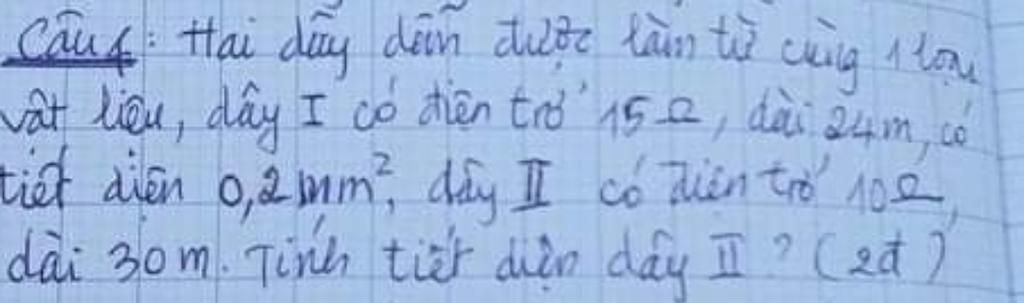 Câu 4: Hai dây dẫn được làm từ cùng 1 loại
vật liệu, dây I có điện trở 15Ω, dài 24m, có
tiết diện 0,2mm², dây II có điện trở 10Ω,
dài 30m. Tính tiết diện dây II? (2đ)